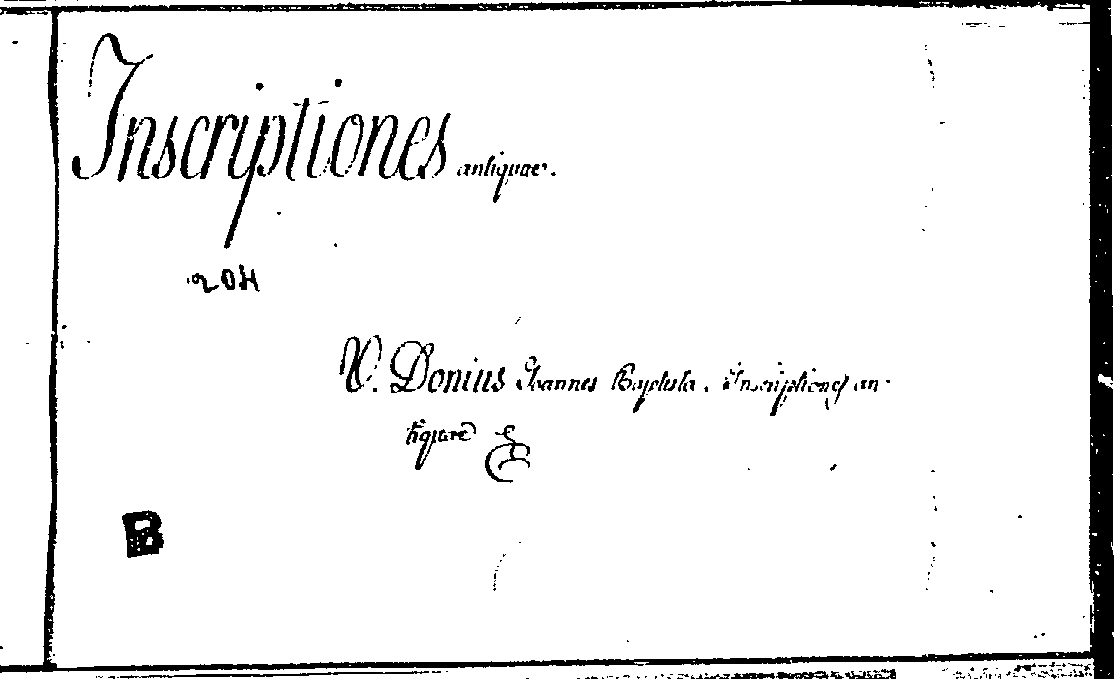 Inscriptiones antiquae.
204
V. Donius Joannes Baptista. Inscriptiones an-
tiquae
B